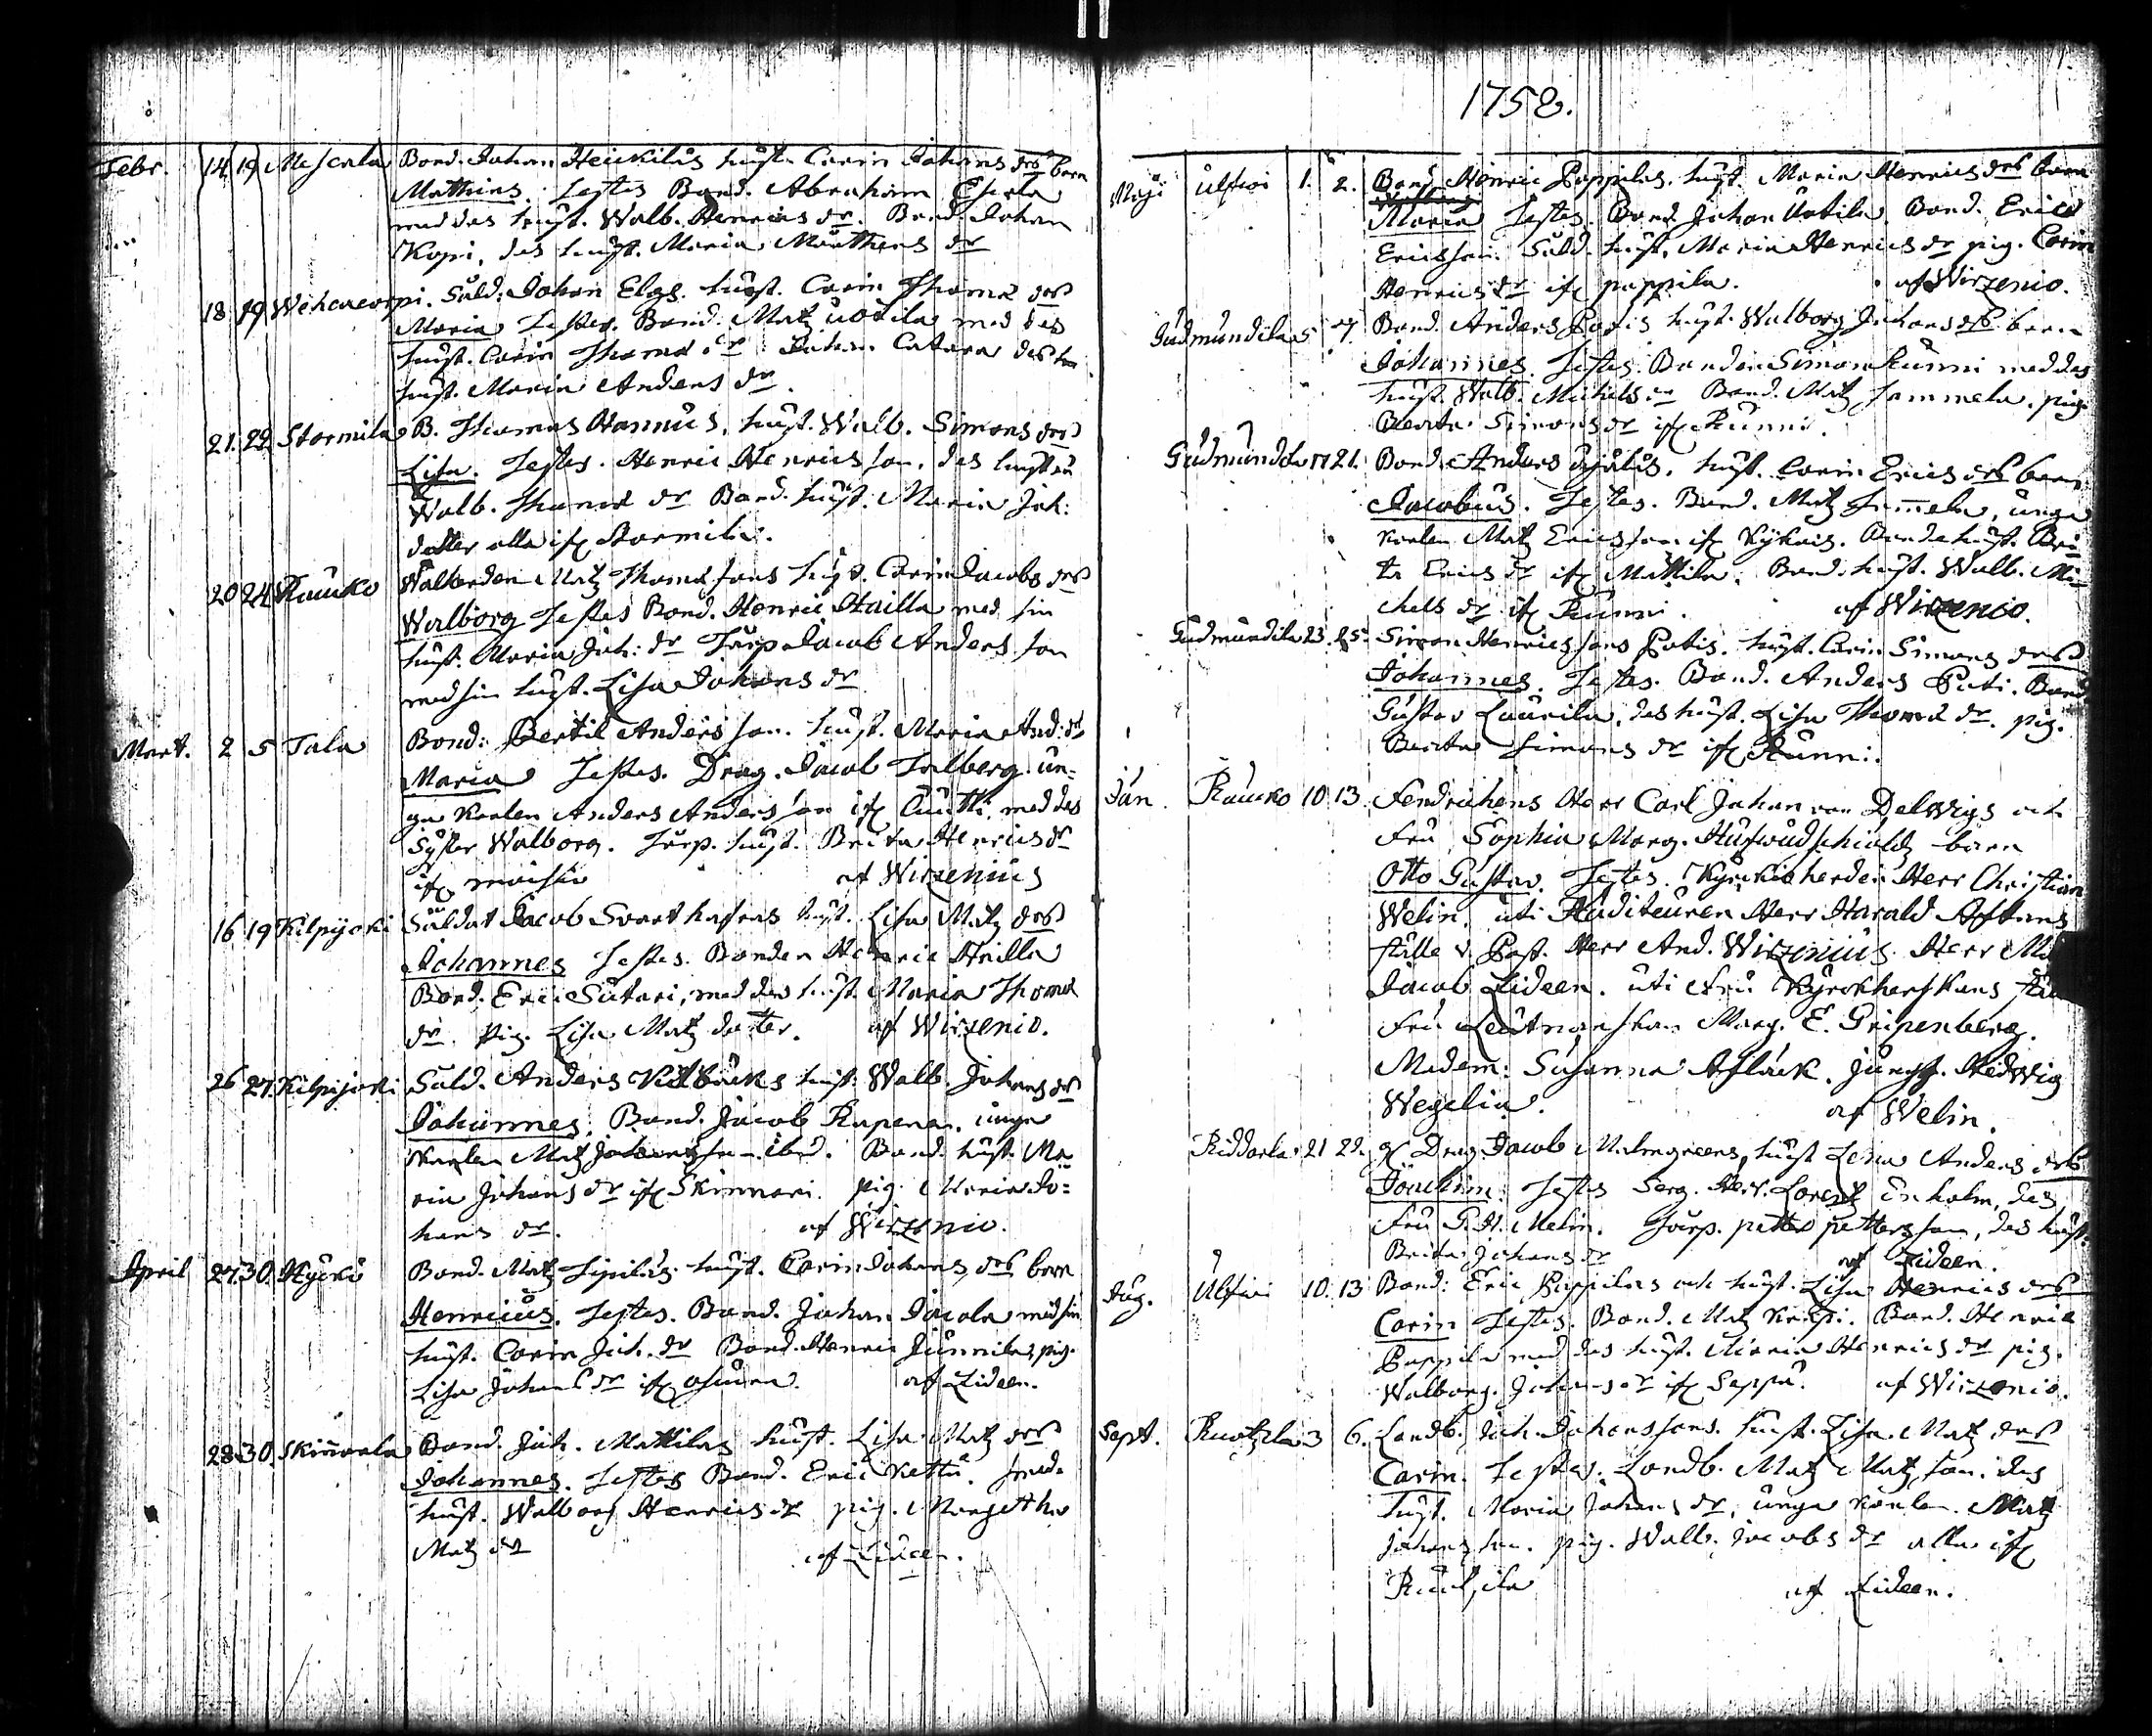 Febr. 14 19 Mescala Bond. Johan Heickiläs hust. Carin Johans drs barn
Mathias. Testes Bond. Abraham Eskola
med des hust. Walb. Henrics dr. Bond. Johan
Kopi, des hust. Maria Matthens dr
18 19 Wehcacorpi. Sold. Johan Elgs hust. Carin Thomæ drs
Maria Testes. Bond. Matz Uotila med des
hust. Carin Thomæ dr. Johan Catara des
hust. Maria Anders dr.
21. 22 Stormila B. Thomas Hannus, hust. Walb. Simons drs
Lisa. Testes. Henric Henricsson, des hustru
Walb. Thomæ dr Bond. hust. Maria Joh:
dotter alla ifr. Stormila.
20 24 Raucko Walherden Matz Thomæ sons hust. Carin Jacobs drs
Walborg Testes Bond. Henric Hailla med sin
hust. Maria Joh: dr Torp. Jacob Anders son
med sin hust. Lisa Johans dr
Mart. 2 5 Tala Bond: Bertil Anders son. hust. Maria And: dr
Maria Testes. Drag. Jacob Talberg. un-
ga karlen Anders Anders son ifr. med des
Syster Walborg. Torp. hust. Brita Henrics dr
ifr. moisio af Wirzenius
16 19 Kilpijoki Soldat Jacob Svarthafras hust. Lisa Matz drs
Johannes Testes. Bonden Henric Heilla
Bond. Eric Sutari, med des hust. Maria Thomæ
dr. Pig. Lisa Matz dotter. af Wirzenio.
26 27. Kilpijoki Sold. Anders hust. Walb. Johans drs
Johannes. Bond. Jacob Rapena. unga
karlen Matz Johansson ibid. Bond. hust. Ma-
ria Johans dr ifr. Skinnari. pig. Maria Jo-
hans dr. af Wirzenio.
April 27 30. Hyckö Bond. Matz hust. Carin Johans drs barn
Henricus. Testes. Bond. Johan Jacola med sin
hust. Carin Joh. dr Bond. Henric Junnila, pig.
Lisa Johans dr ifr. af Lideen.
28 30. Skinnarla Bond. Joh. Mattilas hust. Lisa Matz drs
Johannes. Testes Bond. Eric Kettu.
hust. Walborg Henrics dr pig. Margetha
Matz dr af Lideen.
1758.
Maji Ulfwi 1. 2. Bond. Henric Pappilas. hust. Maria Henrics drs barn
Maria Testes. Bond. Johan Uotila. Bond. Eric
Ericsson. Sold. hust. Maria Henrics dr pig. Carin
Henrics dr ifr. pappila. af Wirzenio.
Gudmundila 5 7. Bond. Anders Potis hust. Walborg Johans drs barn
Johannes. Testes. Bonden Simon Runni med des
hust. Walb. Michels dr Bond. Matz Sammela. pig.
Beata Simons dr ifr. Runni.
Gudmundila 17 21. Bond. Anders hust. Carin Erics drs barn
Jacobus. Testes. Bond. Matz, unga
karlen Matz Ericsson ifr. Kykais. Bonde hust. Bri-
ta Erics dr ifr. Mattila. Bond. hust. Walb. Mi-
chels dr ifr. Runni. af Wirzenio.
Gudmundila 23. 25. Simon Henrics sons Potis. hust. Carin Simons drs
Johannes. Testes. Bond. Anders Poti. Bond
Gustav Laurila, des hust. Lisa Thomæ dr. pig.
Beata Simons dr ifr. Runni.
Jun. Raucko 10. 13. Fendrickens Herr Carl Johan von Delwigs och
Fru Sophia Marg. Hufwudschiölds barn
Otto Gustav. Testes. Kyrckioherden Herr Christian
Welin. uti Auditeuren Herr Harald
ställe v. Past. Herr And. Wirzenius. Herr
Jacob Lideen. uti Fru Kyrckherskans
Fru Leutnanskan Marg. E. Gripenberg.
Madem: Susanna Afläck. Jungf. Hedwig
Wegelia. af Welin.
Riddarla 21 22. Drag. Jacob Malmgreens, hust Lena Anders drs
Joachim. Testes Serg. Herr. Lorentz Enholm, des
Fru G. H. Melin. Torp. petter petterson, des hust.
Brita Johans dr af Lideen.
Aug. Ulfwi 10. 13 Bond: Eric Pappilas och hust. Lisa Henrics drs
Carin Testes. Bond. Matz Knapi. Bond. Henric
Pappila med des hust. Maria Henrics dr pig.
Walborg. Johans dr ifr. Seppä. af Wirzenio.
Sept. Ruotzila 3 6. Landb. Joh. Johanssons. hust. Lisa Matz drs
Carin. Testes. Landb. Matz Matzson. des
hust. Maria Johans dr, unga karlen. Matz
Johansson. pig. Walb. Jacobs dr alla ifr.
Ruotsila af Lideen.